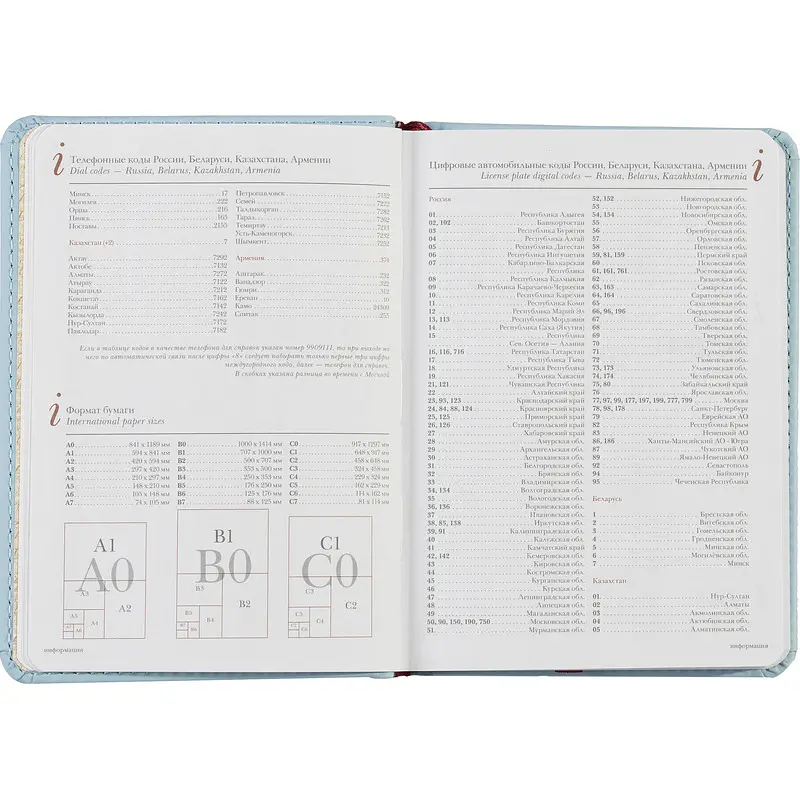 i
Телефонные коды России, Беларуси, Казахстана, Армении
Dial codes — Russia, Belarus, Kazakhstan, Armenia
Минск 17
Могилев 222
Орша 216
Пинск 165
Поставы 2155
Казахстан (+2) 7
Актау 7292
Актобе 7132
Алматы 7272
Атырау 7122
Караганда 7212
Кокшетау 7162
Костанай 7142
Кызылорда 7242
Нур-Султан 7172
Павлодар 7182
Петропавловск 7152
Семей 7222
Талдыкорган 7282
Тараз 7262
Темиртау 7213
Усть-Каменогорск 7232
Шымкент 7252
Армения 374
Аштарак 232
Ванадзор 322
Гюмри 312
Ереван 10
Само 24300
Спитак 255
Если в таблице кодов в качестве телефона для справок указан номер 9909111, то при выходе на
него по автоматической связи после цифры «8» следует набирать только первые три цифры
междугородного кода, далее — телефон для справок.
В скобках указана разница во времени с Москвой
i
Формат бумаги
International paper sizes
A0 841 x 1189 мм
A1 594 x 841 мм
A2 420 x 594 мм
A3 297 x 420 мм
A4 210 x 297 мм
A5 148 x 210 мм
A6 105 x 148 мм
A7 74 x 105 мм
B0 1000 x 1414 мм
B1 707 x 1000 мм
B2 500 x 707 мм
B3 353 x 500 мм
B4 250 x 353 мм
B5 176 x 250 мм
B6 125 x 176 мм
B7 88 x 125 мм
C0 917 x 1297 мм
C1 648 x 917 мм
C2 458 x 648 мм
C3 324 x 458 мм
C4 229 x 324 мм
C5 162 x 229 мм
C6 114 x 162 мм
C7 81 x 114 мм
A1
A0
A3
A2
A5
A4
A6
B1
B0
B3
B2
B5
B4
B7
B6
C1
C0
C3
C2
C5
C4
C6
информация
Цифровые автомобильные коды России, Беларуси, Казахстана, Армении
License plate digital codes — Russia, Belarus, Kazakhstan, Armenia
i
Россия
01 Республика Адыгея
02, 102 Башкортостан
03 Республика Бурятия
04 Республика Алтай
05 Республика Дагестан
06 Республика Ингушетия
07 Кабардино-Балкарская
Республика
08 Республика Калмыкия
09 Республика Карачаево-Черкессия
10 Республика Карелия
11 Республика Коми
12 Республика Марий Эл
13, 113 Республика Мордовия
14 Республика Саха (Якутия)
15 Республика
Сев. Осетия — Алания
16, 116, 716 Республика Татарстан
17 Республика Тыва
18 Удмуртская Республика
19 Республика Хакасия
21, 121 Чувашская Республика
22 Алтайский край
23, 93, 123 Краснодарский край
24, 84, 88, 124 Красноярский край
25, 125 Приморский край
26, 126 Ставропольский край
27 Хабаровский край
28 Амурская обл.
29 Архангельская обл.
30 Астраханская обл.
31 Белгородская обл.
32 Брянская обл.
33 Владимирская обл.
34, 134 Волгоградская обл.
35 Вологодская обл.
36, 136 Воронежская обл.
37 Ивановская обл.
38, 85, 138 Иркутская обл.
39, 91 Калининградская обл.
40 Калужская обл.
41 Камчатский край
42, 142 Кемеровская обл.
43 Кировская обл.
44 Костромская обл.
45 Курганская обл.
46 Курская обл.
47 Ленинградская обл.
48 Липецкая обл.
49 Магаданская обл.
50, 90, 150, 190, 750 Московская обл.
51 Мурманская обл.
52, 152 Нижегородская обл.
53 Новгородская обл.
54, 154 Новосибирская обл.
55 Омская обл.
56 Оренбургская обл.
57 Орловская обл.
58 Пензенская обл.
59, 81, 159 Пермский край
60 Псковская обл.
61, 161, 761 Ростовская обл.
62 Рязанская обл.
63, 163 Самарская обл.
64, 164 Саратовская обл.
65 Сахалинская обл.
66, 96, 196 Свердловская обл.
67 Смоленская обл.
68 Тамбовская обл.
69 Тверская обл.
70 Томская обл.
71 Тульская обл.
72 Тюменская обл.
73, 173 Ульяновская обл.
74, 174 Челябинская обл.
75, 80 Забайкальский край
76 Ярославская обл.
77, 97, 99, 177, 197, 199, 777, 799 Москва
78, 98, 178 Санкт-Петербург
79 Еврейская АО
82 Республика Крым
83 Ненецкий АО
86, 186 Ханты-Мансийский АО - Югра
87 Чукотский АО
89 Ямало-Ненецкий АО
92 Севастополь
94 Байконур
95 Чеченская Республика
Беларусь
1 Брестская обл.
2 Витебская обл.
3 Гомельская обл.
4 Гродненская обл.
5 Минская обл.
6 Могилёвская обл.
7 Минск
Казахстан
01 Нур-Султан
02 Алматы
03 Акмолинская обл.
04 Актюбинская обл.
05 Алматинская обл.
информация